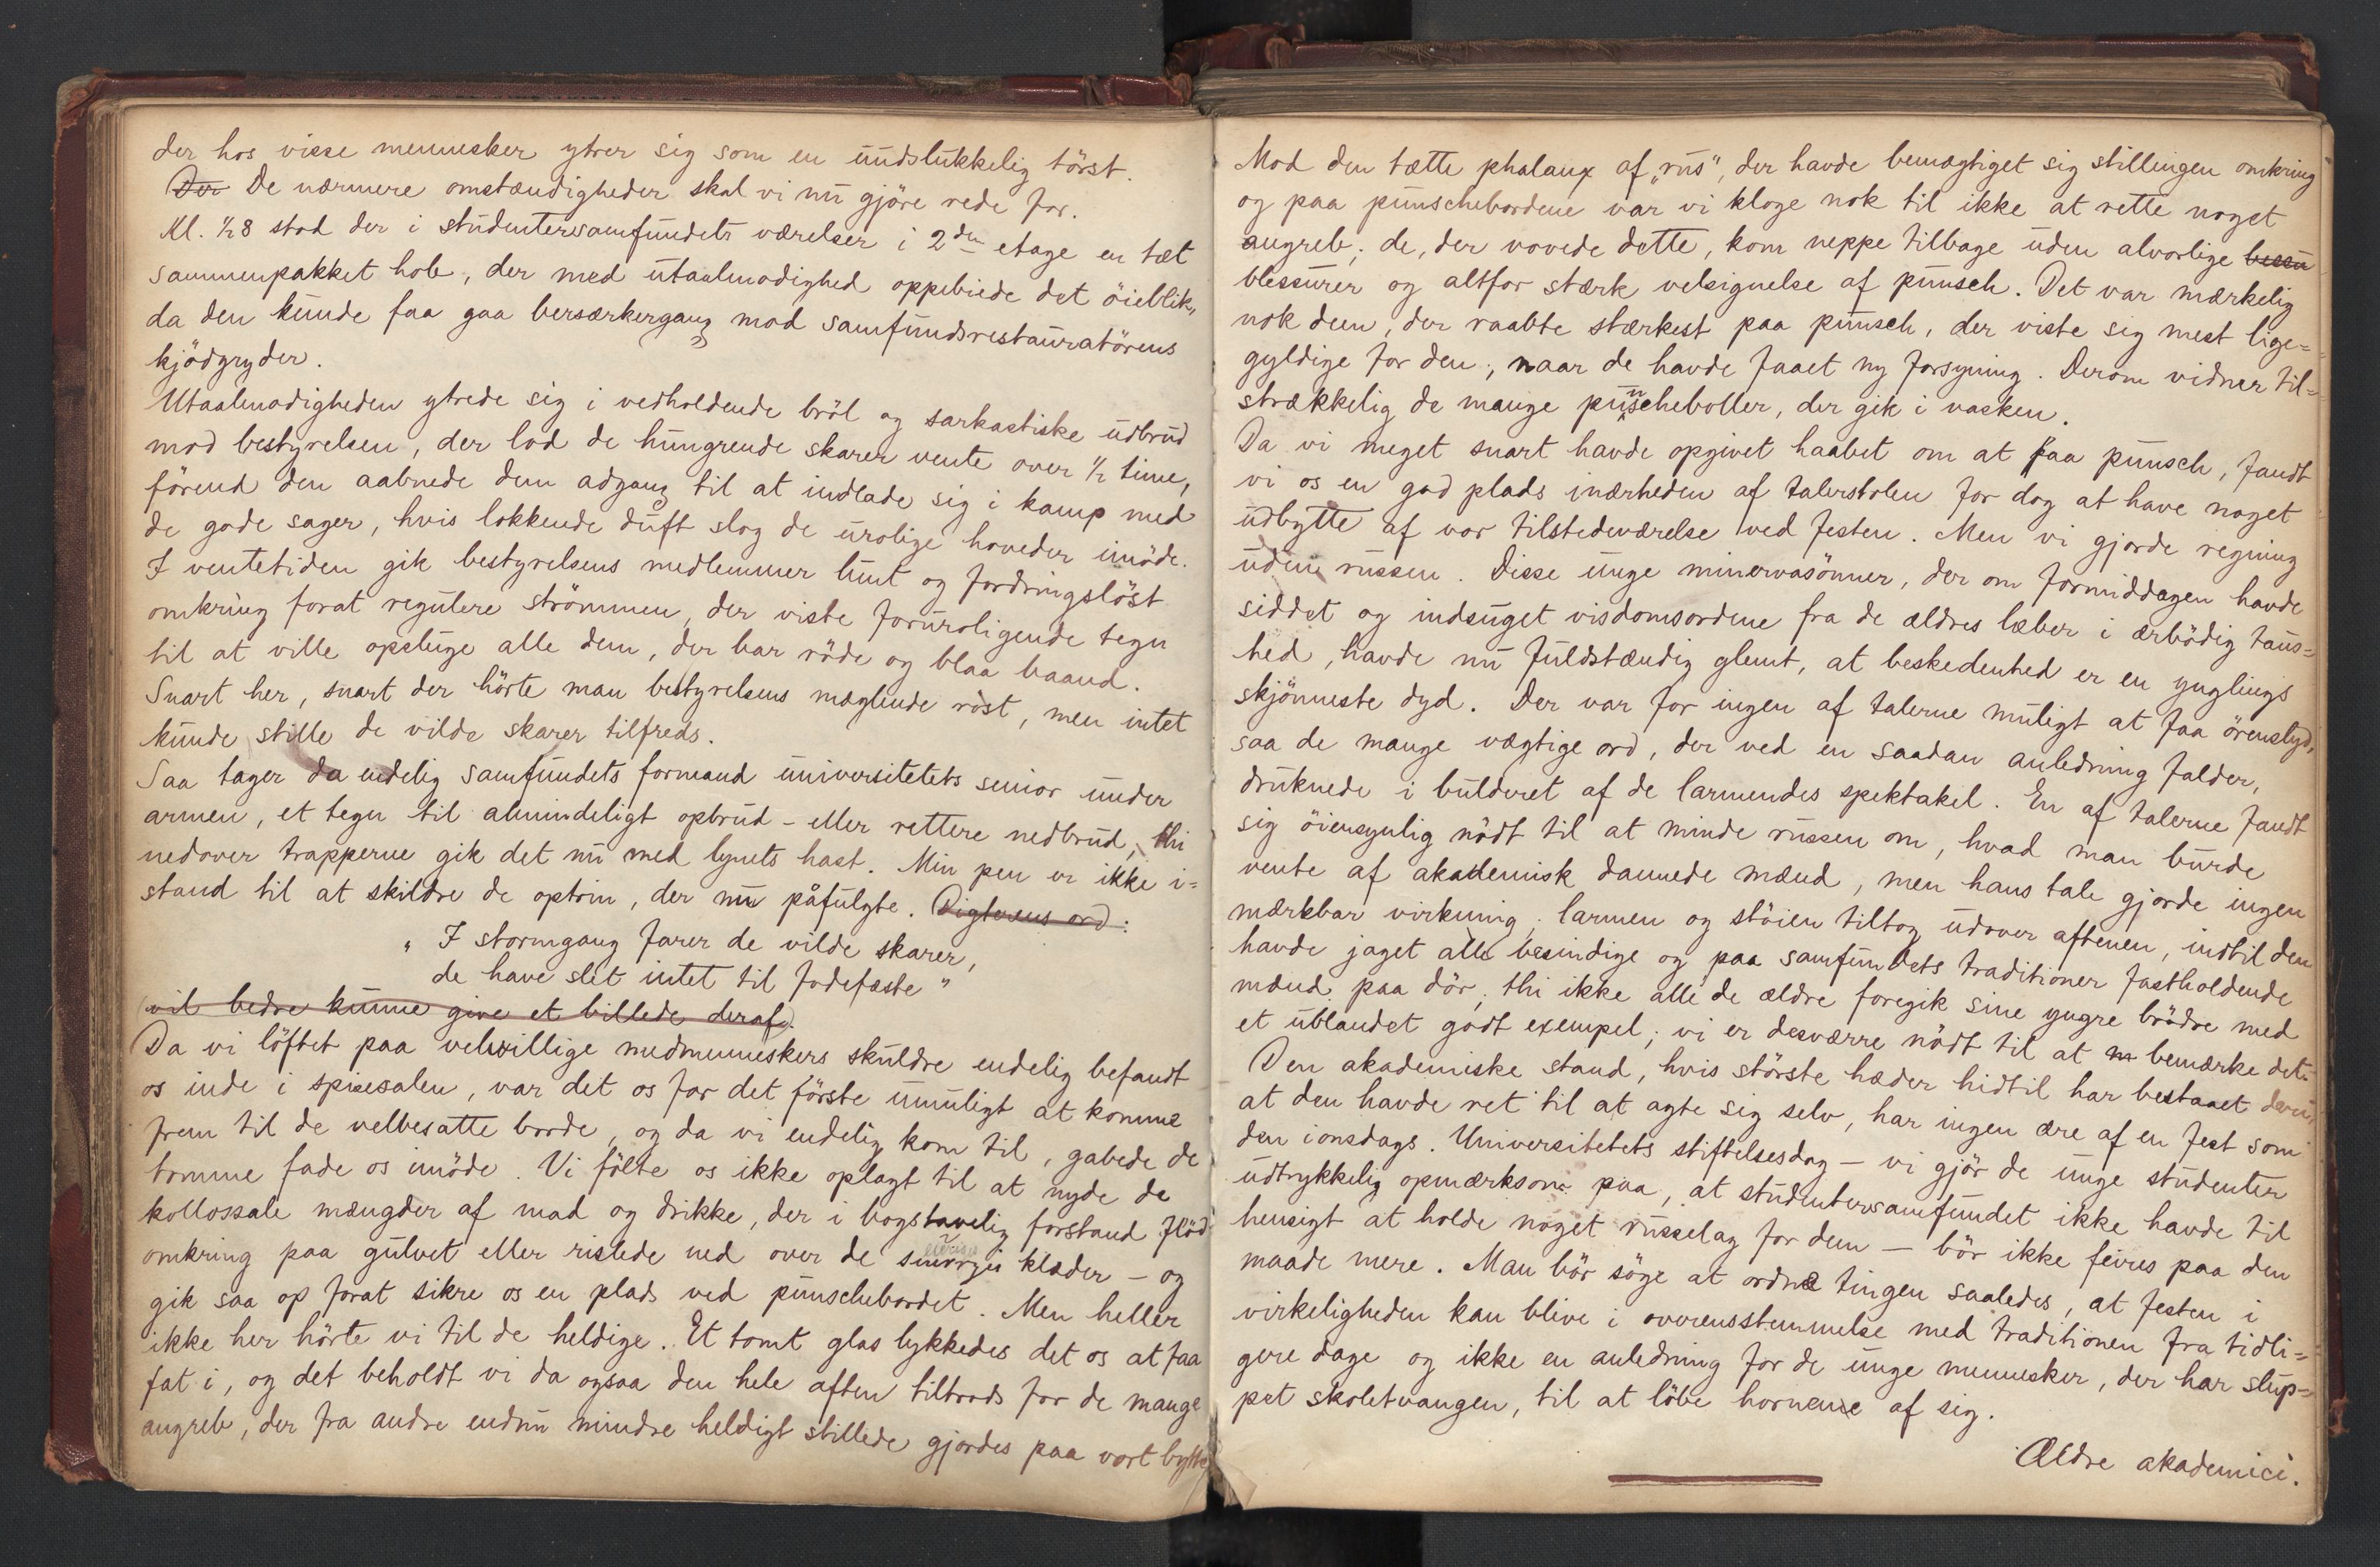 der hos visse mennesker ytrer sig som en uudslukkelig törst.
Der De nærmere omstændigheder skal vi nu gjöre rede for.
Kl. ½8 stod der i studentersamfundets værelser i 2den etage en tæt
sammenpakket hob, der med utaalmodighed oppebiede det öieblik,
da den kunde faa gaa bersærkergang mod samfundsrestauratörens
kjödgryder.
Utaalmodigheden ytrede sig i vedholdende bröl og sarkastiske udbrud
mod bestyrelsen, der lod de hungrende skarer vente over ½ time,
förend den aabnede dem adgang til at indlade sig i kamp med
de gode sager, hvis lokkende duft slog de urolige hoveder imöde.
I ventetiden gik bestyrelsens medlemmer lunt og fordringslöst
omkring forat regulere strömmen, der viste foruroligende tegn
til at ville opsluge alle dem, der bar röde og blaa baand.
Snart her, snart der hörte man bestyrelsens mæglende röst, men intet
kunde stille de vilde skarer tilfreds.
Saa tager da endelig samfundets formand universitetets senior under
armen, et tegn til almindeligt opbrud - eller rettere nedbrud, thi
nedover trapperne gik det nu med lynets hast. Min pen er ikke i=
stand til at skildre de optrin, der nu påfulgte. Digterens ord:
" I stormgang farer de vilde skarer,
de have slet intet til fodefæste "
(vil bedre kunne give et billede deraf).
Da vi löftet paa velvillige medmenneskers skuldre endelig befandt
os inde i spisesalen, var det os for det förste umuligt at komme
frem til de velbesatte borde, og da vi endelig kom til, gabede de
tomme fade os imöde. Vi fölte os ikke oplagt til at nyde de
kollossale mængder af mad og drikke, der i bogstavelig forstand flöd
omkring paa gulvet eller rislede ned over de klæder - og
gik saa op forat sikre os en plads ved punschebordet. Men heller
ikke her hörte vi til de heldige. Et tomt glas lykkedes det os at faa
fat i, og det beholdt vi da ogsaa den hele aften tiltrods for de mange
angreb, der fra andre endnu mindre heldigt stillede gjordes paa vort bytte
Mod den tætte phalanx af "rus", der havde bemægtiget sig stillingen omkring
og paa punschebordene var vi kloge nok til ikke at rette noget
angreb; de, der vovede dette, kom neppe tilbage uden alvorlige bessu
blessurer og altfor stærk velsignelse af punsch. Det var mærkelig
nok dem, der raabte stærkest paa punsch, der viste sig mest lige=
gyldige for den, naar de havde faaet ny forsyning. Derom vidner til=
strækkelig de mange punscheboller, der gik i vasken.
Da vi meget snart havde opgivet haabet om at faa punsch, fandt
vi os en god plads inærheden af talerstolen for dog at have noget
udbytte af vor tilstedeværelse ved festen. Men vi gjorde regning
uden russen. Disse unge minervasönner, der om formiddagen havde
siddet og indsuget visdomsordene fra de ældres læber i ærbödig taus=
hed, havde nu fuldstændig glemt, at beskedenhed er en ynglings
skjönneste dyd. Der var for ingen af talerne muligt at faa örenslyd,
saa de mange vægtige ord, der ved en saadan anledning falder,
druknede i bulderet af de larmendes spektakel. En af talerne fandt
sig öiensynlig nödt til at minde russen om, hvad man burde
vente af akademisk dannede mænd, men hans tale gjorde ingen
mærkbar virkning; larmen og stöien tiltog udover aftenen, indtil den
havde jaget alle besindige og paa samfundets traditioner fastholdende
mænd paa dör; thi ikke alle de ældre foregik sine yngre brödre med
et ublandet godt exempel; vi er desværre nödt til at m bemærke det.
Den akademiske stand, hvis störste hæder hidtil har bestaaet deri,
at den havde ret til at agte sig selv, har ingen ære af en fest som
den ionsdags. Universitetets stiftelsesdag - vi gjör de unge studenter
udtrykkelig opmærksom paa, at studentersamfundet ikke havde til
hensigt at holde noget russelag for dem - bör ikke feires paa den
maade mere. Man bör söge at ordne tingen saaledes, at festen i
virkeligheden kan blive i overensstemmelse med traditionen fra tidli=
gere dage og ikke en anledning for de unge mennesker, der har slup=
pet skoletvangen, til at löbe hornene af sig.
Ældre akademici.